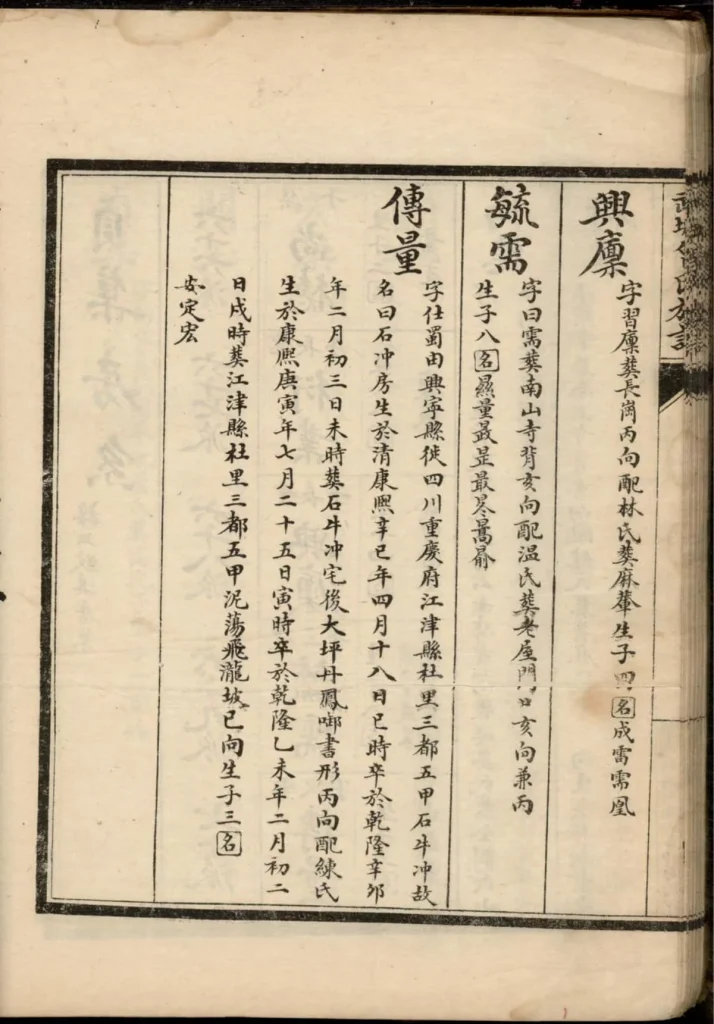 武城曾氏族譜
興廩
字習廩葬長崗丙向配林氏葬麻輋生子四名成雷需凰
毓需
字曰需葬南山寺背亥向配温氏葬老屋門口亥向兼丙
生子八名㬎量晸昰最昜暠
傳量
字仕蜀由興寧縣徙四川重慶府江津縣杜里三都五甲石牛冲故
名曰石冲房生於清康熙辛巳年四月十八日巳時卒於乾隆辛卯
年二月初三日未時葬石牛冲宅後大坪丹鳳啣書形丙向配練氏
生於康熙庚寅年七月二十五日寅時卒於乾隆乙未年二月初二
日戌時葬江津縣杜里三都五甲泥蕩飛瀧坡巳向生子三名
安定宏